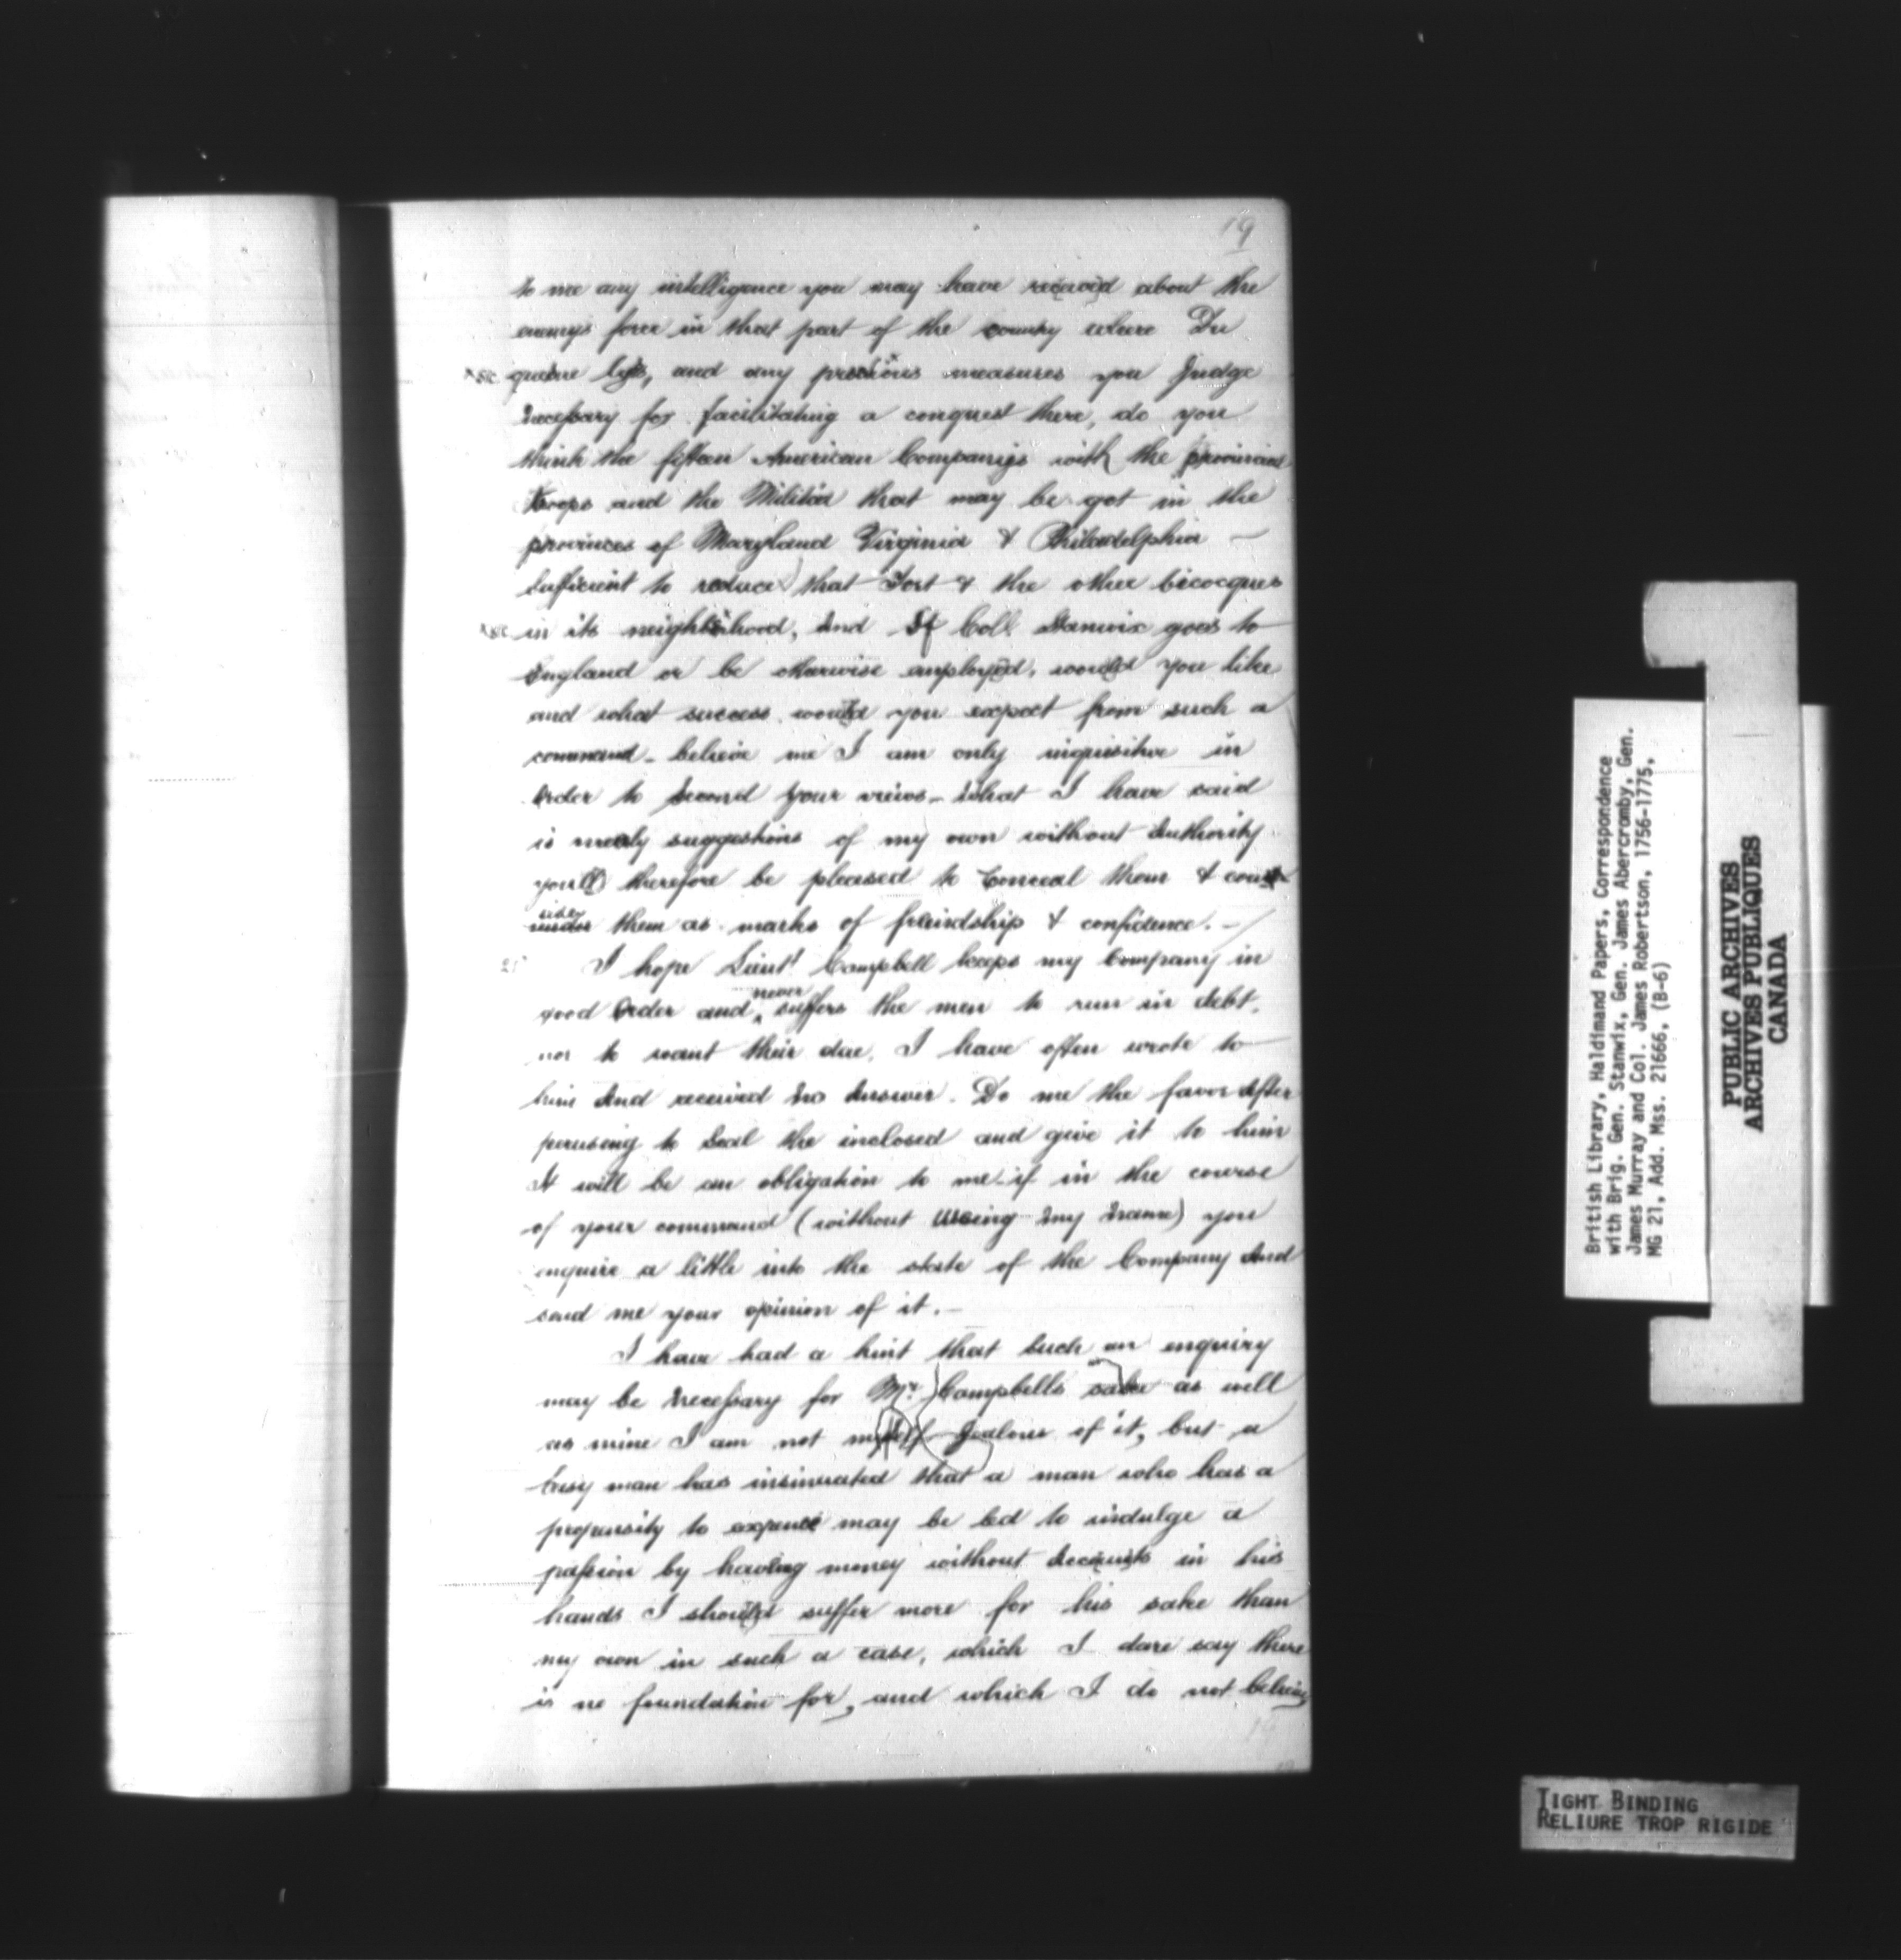 19
to me any intelligence you may have received about the
enemys force in that part of the country where Du
quesne lyes, and any previous measures you Judge
Necessary for facilitating a conquest there, do you
think the fifteen American Companys with the provincial
Troops and the Militia that may be got in the
provinces of Maryland Virginia & Philadelphia —
Sufficient to reduce that Fort & the other bicocques
in its neighborhood, And If Coll Stanwix goes to
England or be otherwise employed, would you like
and what success would you expect from such a
command - believe me I am only inquisitive in
Order to Second your views - What I have said
is merely suggestions of my own without Authority
you'll therefore be pleased to Conceal them & con
sider them as marks of friendship & confidence. —
I hope Lieut Campbell keeps my Company in
good Order and never suffers the men to run in debt,
nor to want their due. I have often wrote to
him And received No Answer. Do me the favor After
perusing to Seal the inclosed and give it to him
It will be an obligation to me if in the course
of your command (without Useing My Name) you
enquire a little into the state of the Company And
send me your opinion of it. —
I have had a hint that Such an enquiry
may be Necessary for Mr Campbells sake as well
as mine I am not myself Jealous of it, but a
busy man has insinuated that a man who has a
propensity to expence may be led to indulge a
passion by having money without Accounts in his
hands I should suffer more for his sake than
my own in such a case, which I dare say there
is no foundation for, and which I do not believe
British Library, Haldimand Papers, Correspondence
with Brig. Gen. Stanwix, Gen. James Abercromby, Gen.
James Murray and Col. James Robertson, 1756-1775,
MG 21, Add. Mss. 21666, (B-6)
PUBLIC ARCHIVES
ARCHIVES PUBLIQUES
CANADA
TIGHT BINDING
RELIURE TROP RIGIDE